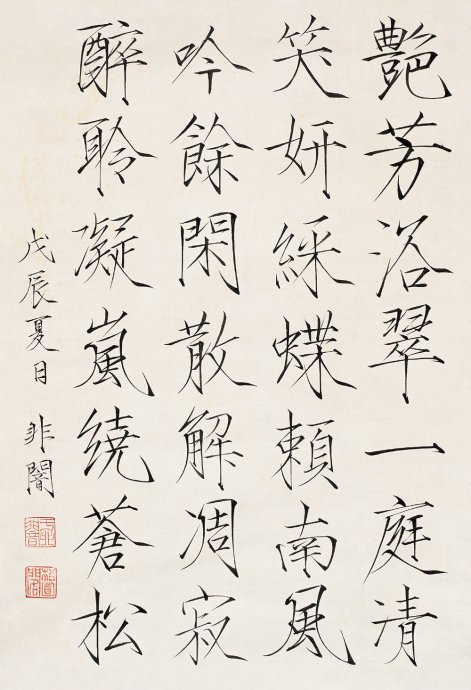 艶芳浴翠一庭清
笑妍綵蝶頼南風
吟餘閑散解凋寂
醉聆凝嵐繞蒼松
戊辰夏日 非闇